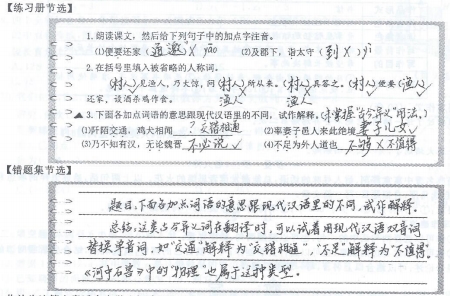 【练习册节选】
1.朗读课文，然后给下列句子中的加点字注音。
(1)便要还家（邀）× yāo (2)及郡下，诣太守（到 ×）yì
2.在括号里填入被省略的人称词。
（村人）见渔人，乃大惊，问（村人）所从来。（村人）具答之。（村人）便要（渔人）
还家，设酒杀鸡作食。 渔人 渔人
▲3.下面各加点词语的意思跟现代汉语里的不同，试作解释。（未掌握“古今异义”用法。）
(1)阡陌交通，鸡犬相闻 ？交错相通 (2)率妻子邑人来此绝境 妻子儿女✓
(3)乃不知有汉，无论魏晋 不必说✓ (4)不足为外人道也 不够×不值得
【错题集节选】
题目：下面各加点词语的意思跟现代汉语里的不同，试作解释。
总结：这类古今异义词在翻译时，可以试着用现代汉语双音词
替换单音词，如“交通”解释为“交错相通”，“不足”解释为“不值得”。
《河中石兽》中的“物理”也属于这种类型。